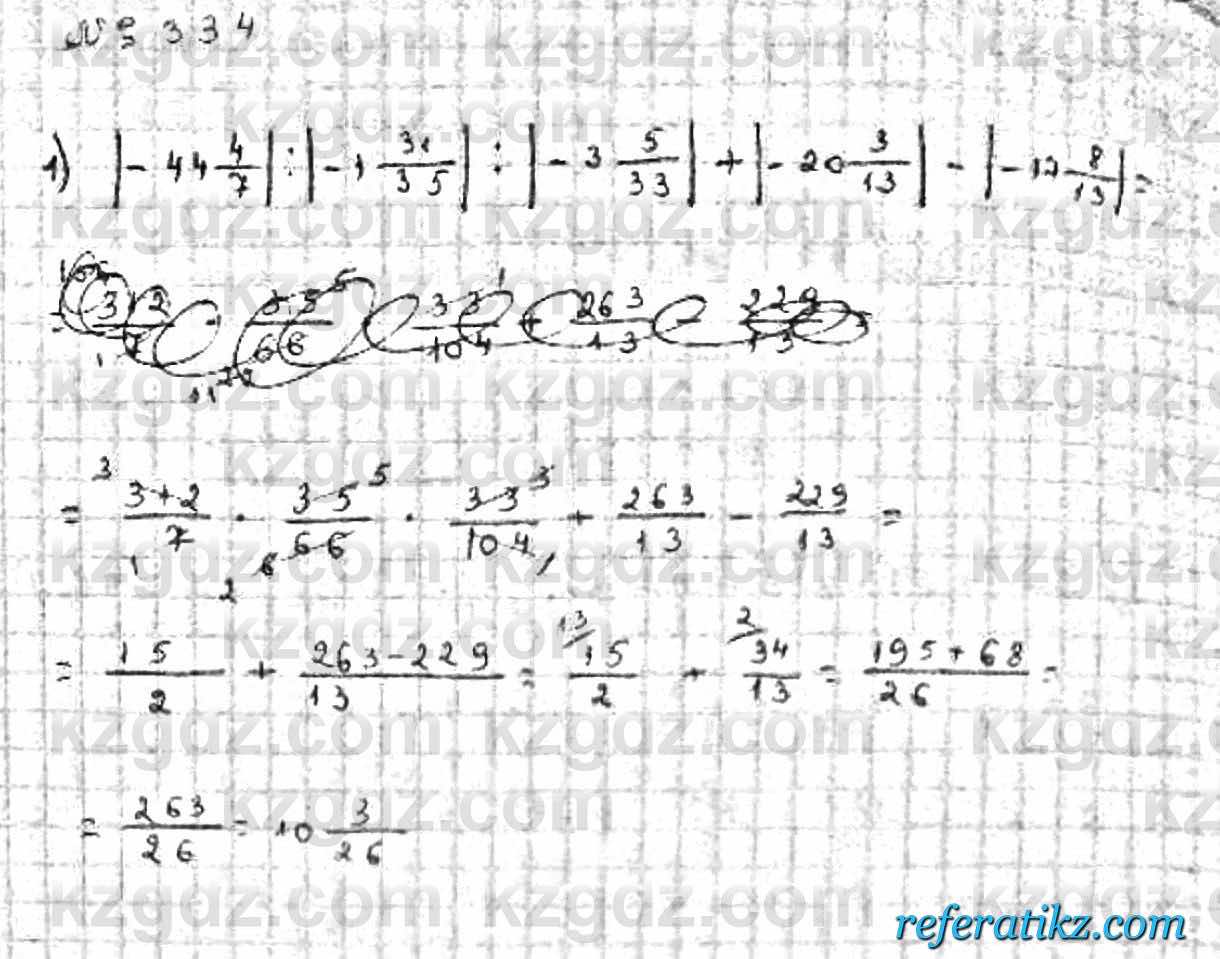 № 334
1) |- 44 4/7| : |- 1 31/35| : |- 3 5/33| + |- 20 3/13| - |- 17 8/13| =
= 3+2/7 · 35/66 · 33/104 + 263/13 - 229/13 =
= 15/2 + 263-229/13 = 15/2 + 34/13 = 195+68/26 =
= 263/26 = 10 3/26
referatikz.com